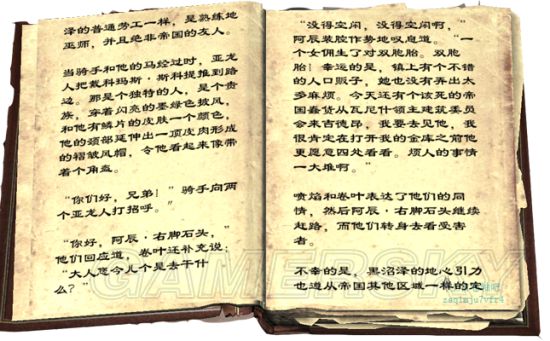 泽的普通劳工一样，是熟练地
巫师，并且绝非帝国的友人。
当骑手和他的马经过时，亚龙
人把戴科玛斯·斯科提推到路
边。那是个独特的人，是个贵
族，穿着闪亮的墨绿色披风，
和他有鳞片的皮肤一个颜色，
他的颈部延伸出一顶皮肉形成
的褶皱风帽，令他看起来像带
着个角盔。
“你们好，兄弟！”骑手向两
个亚龙人打招呼。
“你好，阿辰·右脚石头，”
他们回应道，卷叶还补充说：
“大人您今儿个是去干什
么？”
“没得空闲，没得空闲啊，”
阿辰装腔作势地叹息道。“
一个女佣生了对双胞胎。双胞
胎！幸运的是，镇上有个不错
的人口贩子，她也没有弄出太
多麻烦。今天还有个该死的帝
国嘉货从瓦尼什领主建筑委员
会来吉德昂，我要去见他，我
很肯定在打开我的金库之前他
更愿意四处看看。烦人的事情
一大堆啊。”
喷焰和卷叶表达了他们的同
情，然后阿辰·右脚石头继续
赶路，而他们转身去看受害
者。
不幸的是，黑沼泽的地心引力
也道从帝国其他区域一样的定
GAMERSKY
zaqimju7vfr4